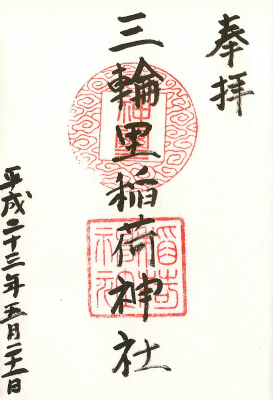 奉拝
三輪里稲荷神社
平成二十三年五月二十一日